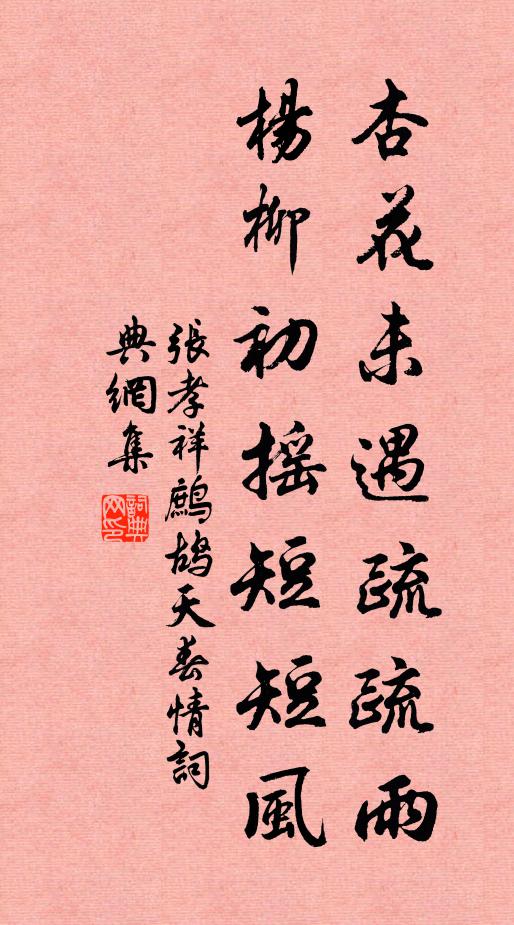 杏花未遇疏疏雨
楊柳初搖短短風
張孝祥鷓鴣天春情詞
典網集
詞典網印